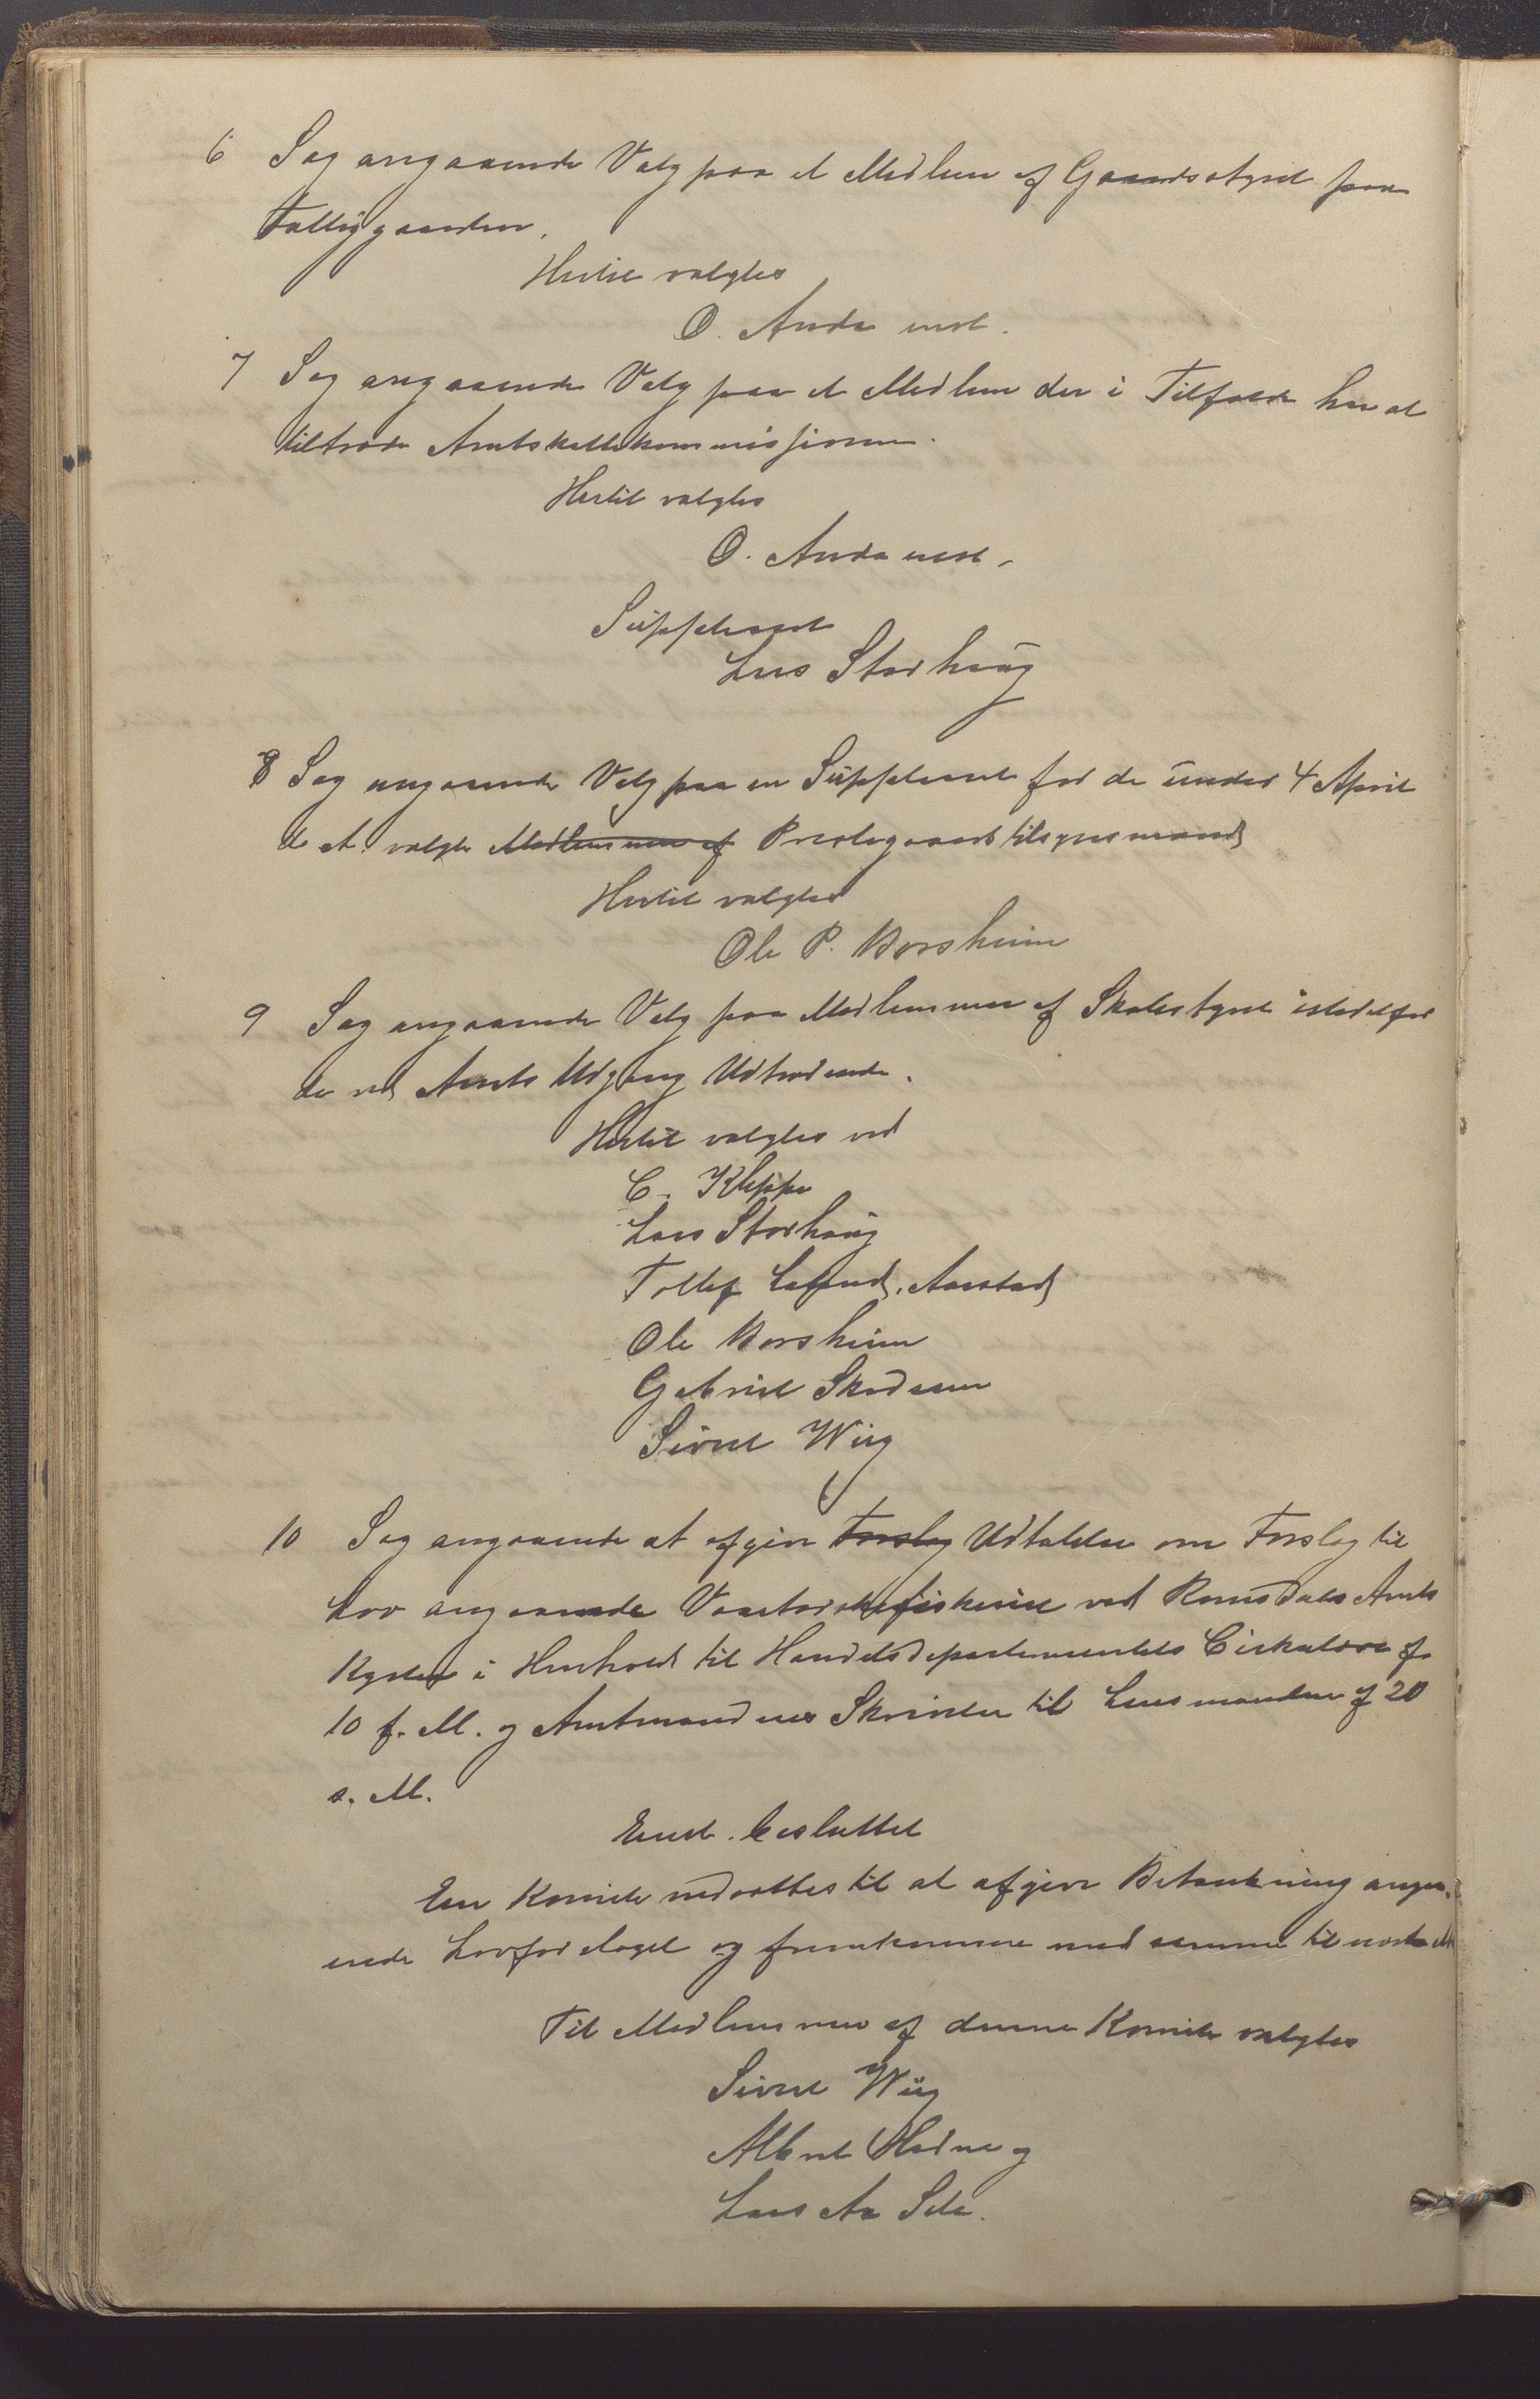 6 Sag angaaende Valg paa et Medlem af Gaardsstyret paa
Fattiggaarden.
Hertil valgtes
O. Anda enst.
7 Sag angaaende Valg paa et Medlem der i Tilfælde har at
tiltræde Amtskattekommissionen.
Hertil valgtes
O. Anda enst.
Suppleant
Lars Storhaug
8 Sag angaaende Valg paa en Suppleant for de under 4 April
d. A. valgte Medlemmer af Prestegaardstilsynsmænd
Hertil valgtes
Ole P. Borsheim
9 Sag angaaende Valg paa Medlemmer af Skolestyret istedetfor
de ved Aarets Udgang Udtrædende.
Hertil valgtes ved
C. Kleppe
Lars Storhaug
Tollef Aarstad
Ole Borsheim
Gabriel Skadsem
Sivert Wiig
10 Sag angaaende at afgive Forslag Udtalelse om Forslag til
Lov angaaende Vaartorskefiskeriet ved Romsdals Amts
Kyster i Henhold til Handelsdepartementets Cirkulære af
10 f. M. og Amtmandens Skrivelse til Lensmanden af 20
s. M.
Enst. besluttet
En Komite nedsættes til at afgive Betænkning angaa-
ende Lovforslaget og fremkomme med samme til næste
Til Medlemmer af denne Komite valgtes
Sivert Wiig
Albert Hodne og
Lars Aa Sele.